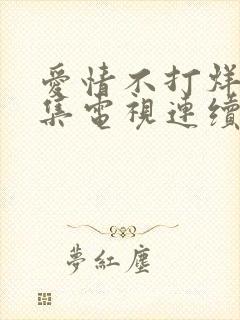 愛情不打烊
集電視連續
夢紅塵